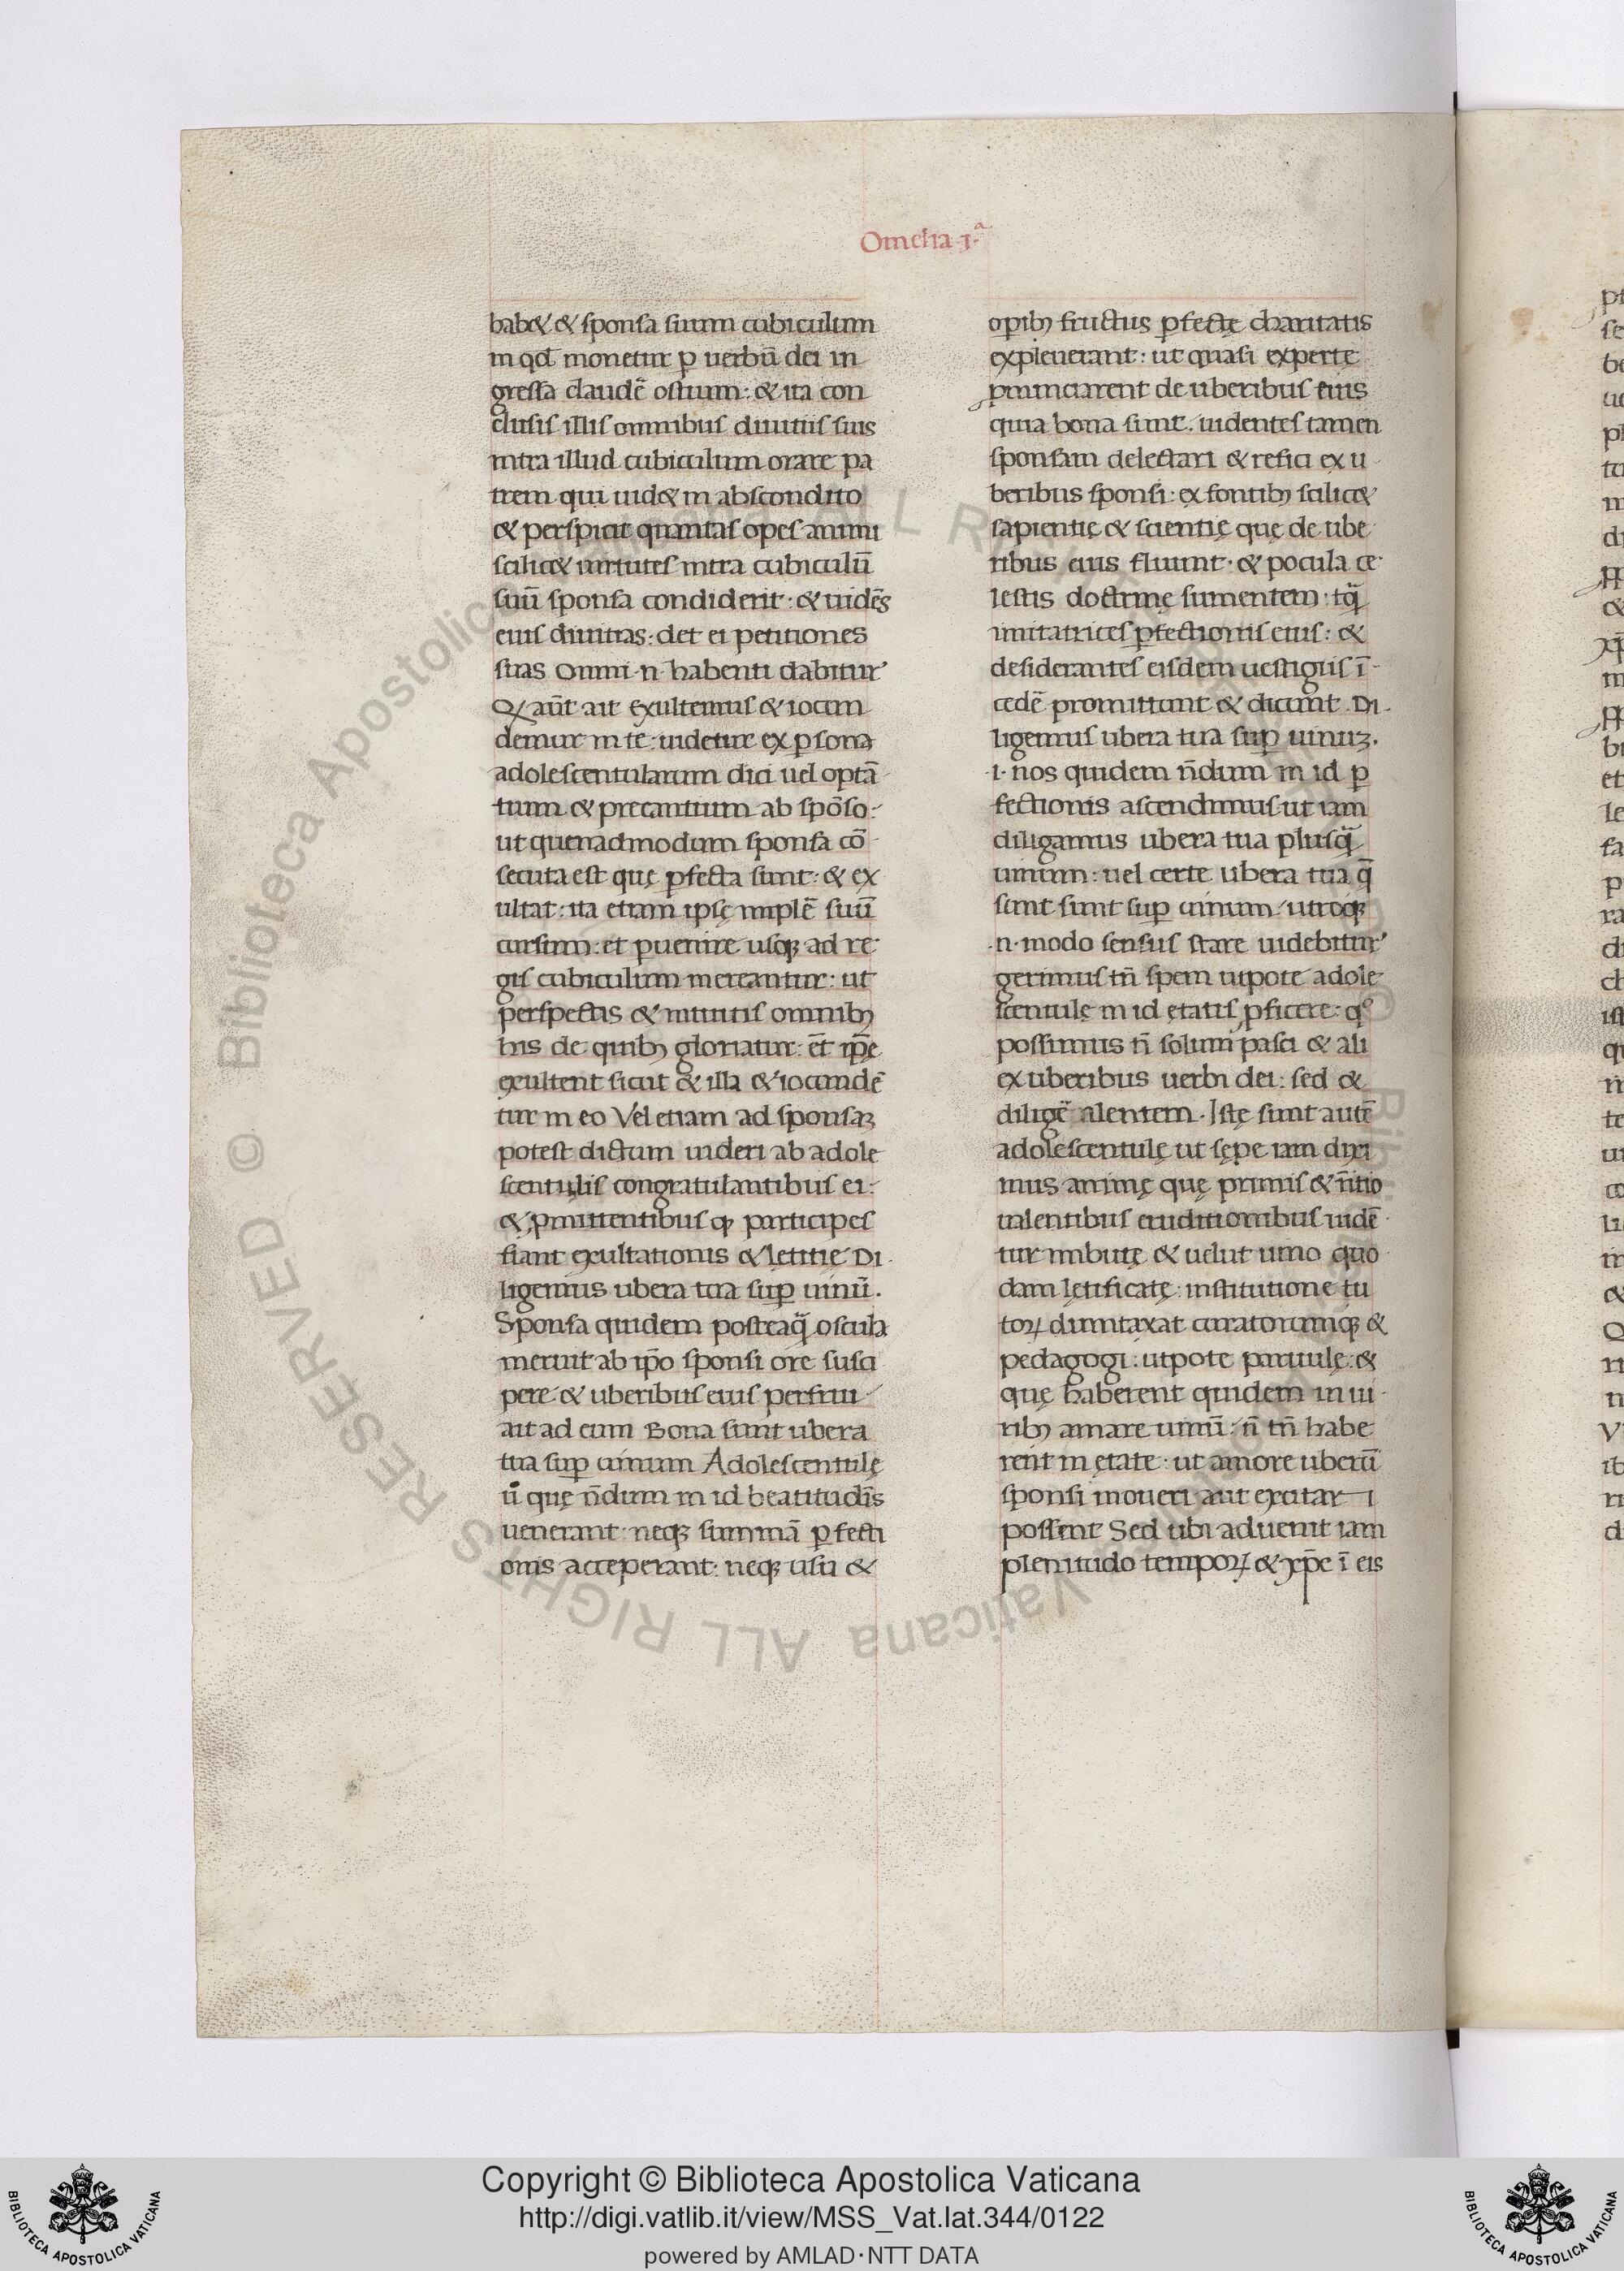 Omelia .i.ª
habet & sponsa suum cubiculum
in qd̄ monetur ꝑ uerbū dei in
gressa claudē ostium: & ita con
clusis illis omnibus diuitiis suis
intra illud cubiculum orare pa
trem qui uidet in abscondito
& perspicit quantas opes animi
scilicet uirtutes intra cubiculū
suū sponsa condiderit: & uidēs
eius diuitias: det ei petitiones
suas Omni .n. habenti dabitur
Qꝫ aūt ait exultemus & iocun
demur in te: uidetur ex ꝑsona
adolescentularum dici uel optā
tium & precantium ab spōso:
ut quenadmodum sponsa cō
secuta est quę ꝑfecta sunt: & ex
ultat: ita etiam ipsę implē suū
cursum: et ꝑuenire usqꝫ ad re
gis cubiculum mereantur: ut
perspectis & intuitis omnibꝫ
his de quibꝫ gloriatur: et̄ ip̄e
exultent sicut & illa & iocundē
tur in eo Vel etiam ad sponsaꝫ
potest dictum uideri ab adole
scentulis congratulantibus ei:
& ꝓmittentibus ꝙ participes
fiant exultationis & lętitię Di
ligemus ubera tua suꝑ uinū.
Sponsa quidem posteaq̄ oscula
meruit ab ip̄o sponsi ore susci
pere & uberibus eius perfrui
ait ad eum Bona sunt ubera
tua suꝑ uinum Adolescentulę
ū quę n̄dum in id beatitudīs
uenerant: neqꝫ summā ꝑfecti
onis acceperant: neqꝫ usu &
opibꝫ fructus ꝑfectę charitatis
expleuerant: ut quasi experte
ꝓnunciarent de uberibus eius
quia bona sunt. uidentes tamen
sponsam delectari & refici ex u
beribus sponsi: ex fontibꝫ scilicet
sapientię & scientię quę de ube
ribus eius fluunt. & pocula ce
lestis doctrinę sumentem: tq̄
imitatrices ꝑfectionis eius: &
desiderantes eisdem uestigiis ī
cedē promittunt & dicunt. Di
ligemus ubera tua suꝑ uinuꝫ.
.i. nos quidem n̄dum in id ꝑ
fectionis ascendimus ut iam
diligamus ubera tua plusq̄
uinum: uel certe ubera tua q̄
sunt sunt suꝑ uinum utroqꝫ
.n. modo sensus stare uidebitur
gerimus tn̄ spem utpote adole
scentulę in id ętatis ꝓficere: qº
possimus n̄ solum pasci & ali
ex uberibus uerbi dei: sed &
diligē alentem. Istę sunt autē
adolescentulę ut sępe iam dixi
mus animę quę primis & n̄itio
ualentibus eruditionibus uidē
tur imbutę & uelut uino quo
dam lętificatę: institutione tu
toꝝ dumtaxat curatorumqꝫ &
pedagogi: utpote paruulę: &
quę haberent quidem in ui
ribꝫ amare uinū: n̄ tn̄ habe
rent in ętate: ut amore uberū
sponsi moueri aut excitari
possent Sed ubi aduenit iam
plenitudo tempoꝝ & xp̄c ī eis
Copyright © Biblioteca Apostolica Vaticana
http://digi.vatlib.it/view/MSS_Vat.lat.344/0122
powered by AMLAD·NTT DATA